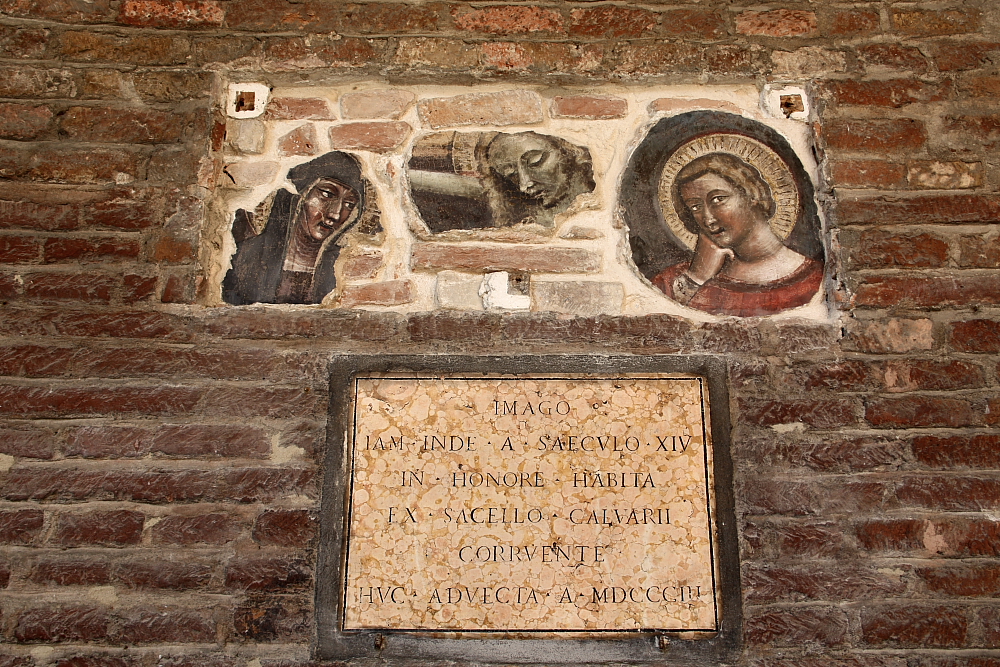 IMAGO
IAM · INDE · A · SAECVLO · XIV
IN · HONORE · HABITA
EX · SACELLO · CALVARII
CORRVENTE
HVC · ADVECTA · A · MDCCCIII